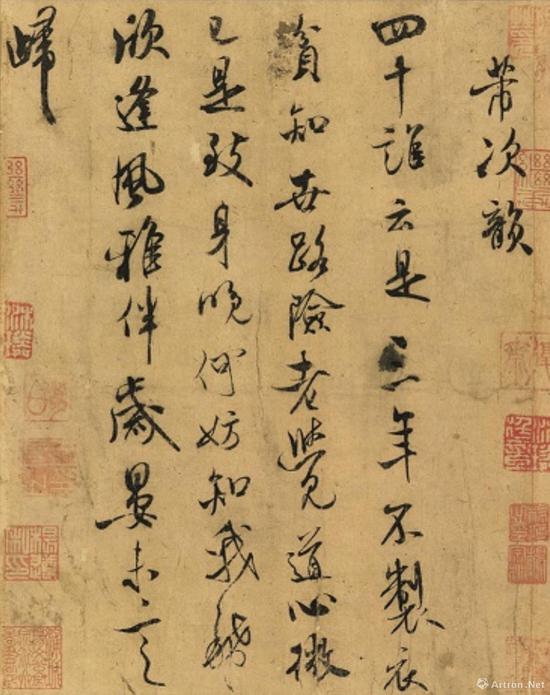 芾次韻
四十誰云是三年不製衣
貧知世路險老覺道心微
已是致身晚何妨知我稀
欣逢風雅伴歲晏未言
歸
Artron.Net